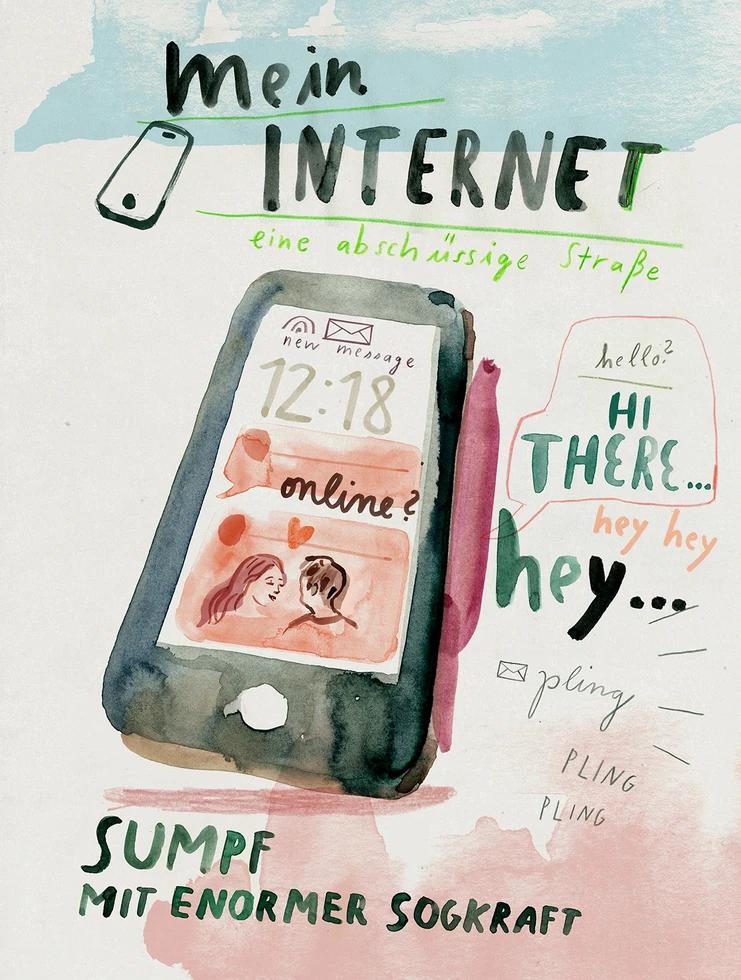 mein
INTERNET
eine abschüssige Straße
new message
12:18
online?
hello?
HI
THERE...
hey hey
hey...
pling
PLING
PLING
SUMPF
MIT ENORMER SOGKRAFT